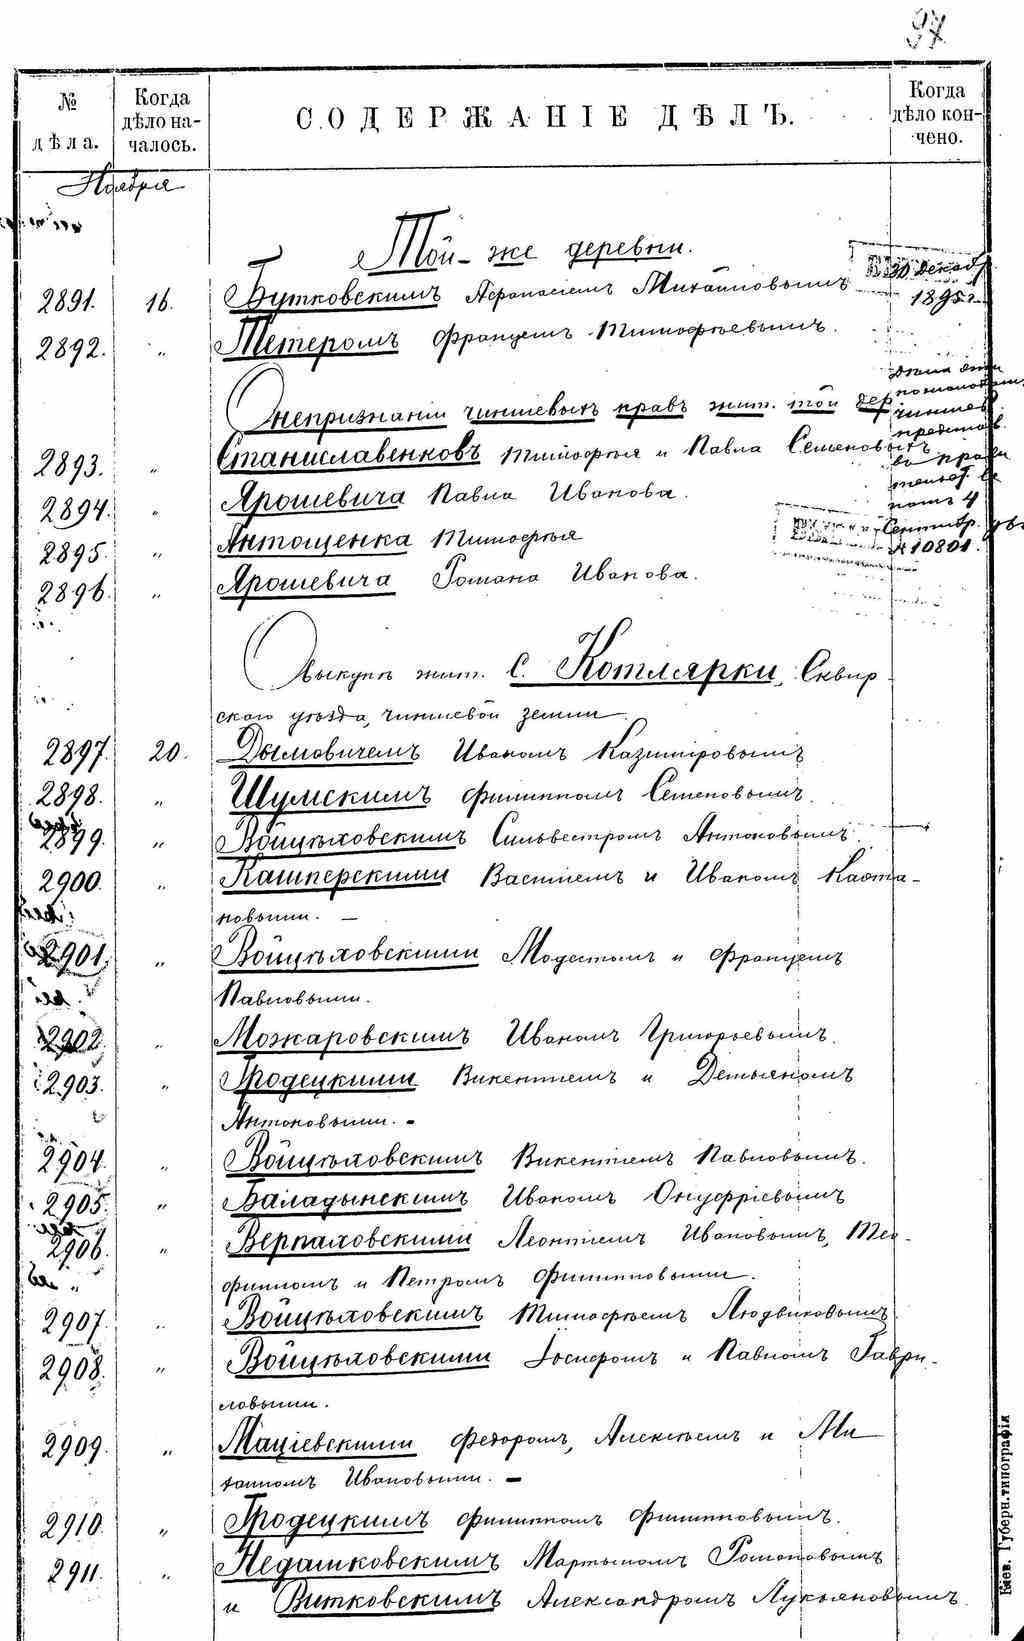 97
№ дѣла.
Когда дѣло началось.
СОДЕРЖАНІЕ ДѢЛЪ.
Когда дѣло кончено.
Ноября
Той-же деревни.
2891. 16. Бутковскимъ Афанасіемъ Михайловымъ 30 декаб
1895 г.
2892. " Петеромъ Францемъ Тимофѣевымъ.
О непризнаніи чиншевыхъ правъ жит. той дер
2893. " Станиславенковъ Тимофѣя и Павла Семеновыхъ
2894. " Ярошевича Павла Иванова.
2895. " Антощенка Тимофѣя
Сентябр.
№ 10801.
2896. " Ярошевича Романа Иванова.
О выкупѣ жит. с. Котлярки, Сквир-
скаго уѣзда, чиншевой земли
2897. 20. Дымовичемъ Иваномъ Казиміровымъ
2898. " Шумскимъ Филиппомъ Семеновымъ.
2899. " Войцѣховскимъ Сильвестромъ Антоновымъ
2900. " Кашперскими Василіемъ и Иваномъ Каэта-
новыми. —
2901. " Войцѣховскими Модестомъ и Францемъ
Павловыми.
2902. " Можаровскимъ Иваномъ Григорьевымъ.
2903. " Гродецкими Викентіемъ и Демьяномъ
Антоновыми. -
2904. " Войцѣховскимъ Викентіемъ Павловымъ.
2905. " Баладынскимъ Иваномъ Онуфріевымъ
2906. " Верпаховскими Леонтіемъ Ивановымъ, Тео-
филомъ и Петромъ Филипповыми.
2907. " Войцѣховскимъ Тимофѣемъ Людвиковымъ
2908. " Войцѣховскими Іосифомъ и Павломъ Гаври-
ловыми.
2909. " Маціевскими Федоромъ, Алексѣемъ и Ми
хаиломъ Ивановыми. -
2910. " Гродецкимъ Филиппомъ Филипповымъ.
2911. " Недашковскимъ Мартыномъ Романовымъ
и Витковскимъ Александромъ Лукьяновымъ.
Кіев. Губерн. типографія